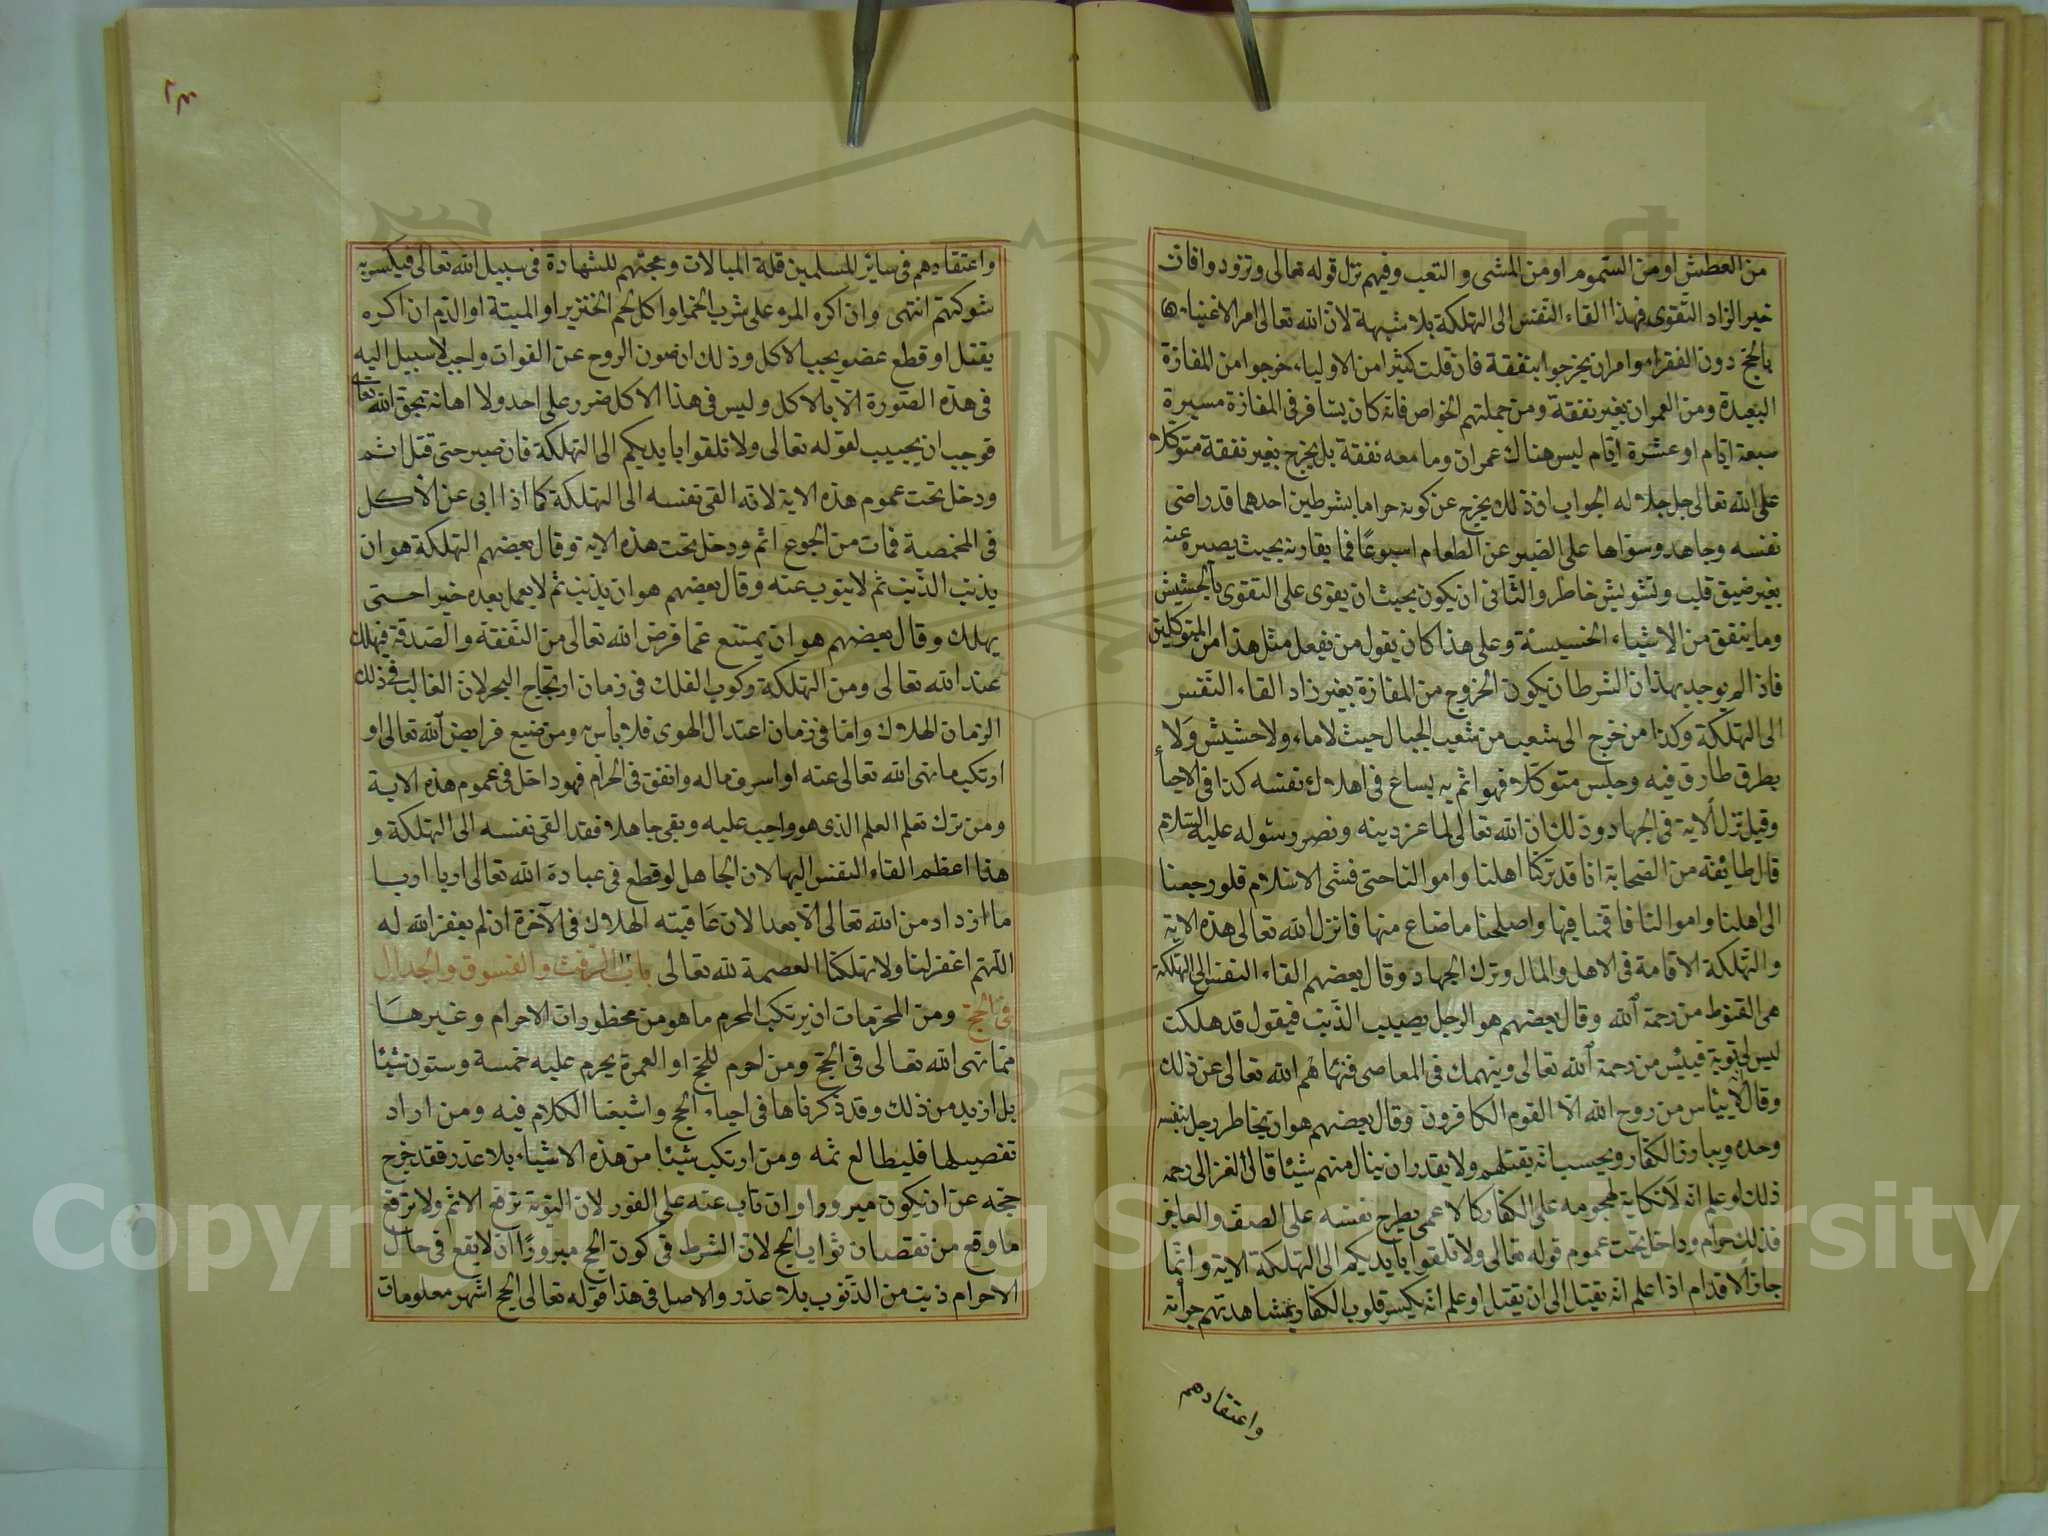 من العطش او من السموم او من المشى والتعب وفيهم نزل قوله تعالى وتزودوا فان
خير الزاد التقوى فهذا القاء النفس الى التهلكة بلا شبهة لان الله تعالى امر الاغنياء
بالحج دون الفقراء وامر ان يخرجوا بنفقة فان قلت كثيرا من الاولياء خرجوا من المفازة
البعيدة ومن العمران بغير نفقة ومن جملتهم الخواص فانه كان يسافر فى المفازة مسيرة
سبعة ايام او عشرة ايام ليس هناك عمران وما معه نفقة بل يخرج بغير نفقة متوكلا
على الله تعالى جل جلاله الجواب ان ذلك يخرج عن كونه حراما بشرطين احدهما قد راضى
نفسه وجاهد وسواها على الصبر عن الطعام اسبوعا فما يقاربه بحيث يصبر عنه
بغير ضيق قلب وتشويش خاطر والثانى ان يكون بحيث ان يقوى على التقوى بالحشيش
وما ينفق من الاشياء الخسيسة وعلى هذا كان يقول من يفعل مثل هذا من المتوكلين
فاذا لم يوجد بهذا ان الشرطان يكون الخروج من المفازة بغير زاد القاء النفس
الى التهلكة وكذا من خرج الى شعب من شعب الجبال حيث لا ماء ولا حشيش ولا
يطرق طارق فيه وجلس متوكلا فهو اثم به يساع فى اهلاك نفسه كذا فى الاحيا
وقيل نزل الاية فى الجهاد وذلك ان الله تعالى لما عز دينه ونصر رسوله عليه السلام
قال طائفة من الصحابة انا قد تركنا اهلنا واموالنا حتى فشى الاسلام فلو رجعنا
الى اهلنا واموالنا فاقمنا فيها واصلحنا ما ضاع منها فانزل الله تعالى هذه الاية
والتهلكة الاقامة فى الاهل والمال وترك الجهاد وقال بعضهم القاء النفس الى التهلكة
هى القنوط من رحمة الله وقال بعضهم هو الرجل يصيب الذنب فيقول قد هلكت
ليس لى توبة فييئس من رحمة الله تعالى وينهمك فى المعاصى فنهاهم الله تعالى عن ذلك
وقال لا ييئاس من روح الله الا القوم الكافرون وقال بعضهم هو ان يخاطر رجل بنفسه
وحده ويبارز الكفار ويحسب انه يقتلهم ولا يقدر ان ينال منهم شيئا قال الغزالى رحمه
ذلك لو علم انه لا نكاية لهجومه على الكفار كالاعمى يطرح نفسه على الصف والعاجز
فذلك حرام وداخل تحت عموم قوله تعالى ولا تلقوا بايديكم الى التهلكة الاية وانما
جاز الاقدام اذا علم انه يقتل الى ان يقتل او علم انه يكسر قلوب الكفار بمشاهدتهم جرأته
واعتقادهم
٢٨
واعتقادهم فى سائر المسلمين قلة المبالات ومحبتهم للشهادة فى سبيل الله تعالى فيكسر به
شوكتهم انتهى وان اكره المرء على شرب الخمر او اكل لحم الخنزير او الميتة او الدم ان اكره
بقتل او قطع عضو يجب الاكل وذلك ان صون الروح عن الفوات واجب لا سبيل اليه
فى هذه الصورة الا بالاكل وليس فى هذا الاكل ضرر على احد ولا اهانة بحق الله تعالى
فوجب ان يجيب لقوله تعالى ولا تلقوا بايديكم الى التهلكة فان صبر حتى قتل اثم
ودخل تحت عموم هذه الاية لانه القى نفسه الى التهلكة كما اذا ابى عن الاكل
فى المخمصة فمات من الجوع اثم ودخل تحت هذه الاية وقال بعضهم التهلكة هو ان
يذنب الذنب ثم لا يتوب عنه وقال بعضهم هو ان يذنب ثم لا يعمل بعده خيرا حتى
يهلك وقال بعضهم هو ان يمتنع عما فرض الله تعالى من النفقة والصدقة فيهلك
عند الله تعالى ومن التهلكة ركوب الفلك فى زمان ارتجاج البحر لان الغالب فى ذلك
الزمان الهلاك واما فى زمان اعتدال الهوى فلا بأس ومن ضيع فرايض الله تعالى او
ارتكب ما نهى الله تعالى عنه او اسرف ماله وانفق فى الحرام فهو داخل فى عموم هذه الاية
ومن ترك تعلم العلم الذى هو واجب عليه وبقى جاهلا فقد القى نفسه الى التهلكة و
هذا اعظم القاء النفس اليها لان الجاهل لو قطع فى عبادة الله تعالى اربا اربا
ما ازداد من الله تعالى الا بعدا لان عاقبته الهلاك فى الآخرة ان لم يغفر الله له
اللهم اغفر لنا ولا تهلكنا العصمة لله تعالى باب الرفث والفسوق والجدال
فى الحج ومن المحرمات ان يرتكب المحرم ما هو من محظورات الاحرام وغيرها
مما نهى الله تعالى فى الحج ومن احرم للحج او العمرة يحرم عليه خمسة وستون شيئا
بل ازيد من ذلك وقد ذكرناها فى احياء الحج واشبعنا الكلام فيه ومن اراد
تفصيلها فليطالع ثمه ومن ارتكب شيئا من هذه الاشياء بلا عذر فقد خرج
حجه عن ان يكون مبرورا وان تاب عنه على الفور لان التوبة ترفع الاثم ولا ترفع
ما وقع من نقصان ثواب الحج لان الشرط فى كون الحج مبرورا ان لا يقع فى حال
الاحرام ذنب من الذنوب بلا عذر والاصل فى هذا قوله تعالى الحج اشهر معلومات
Copyright © King Saud University
1957